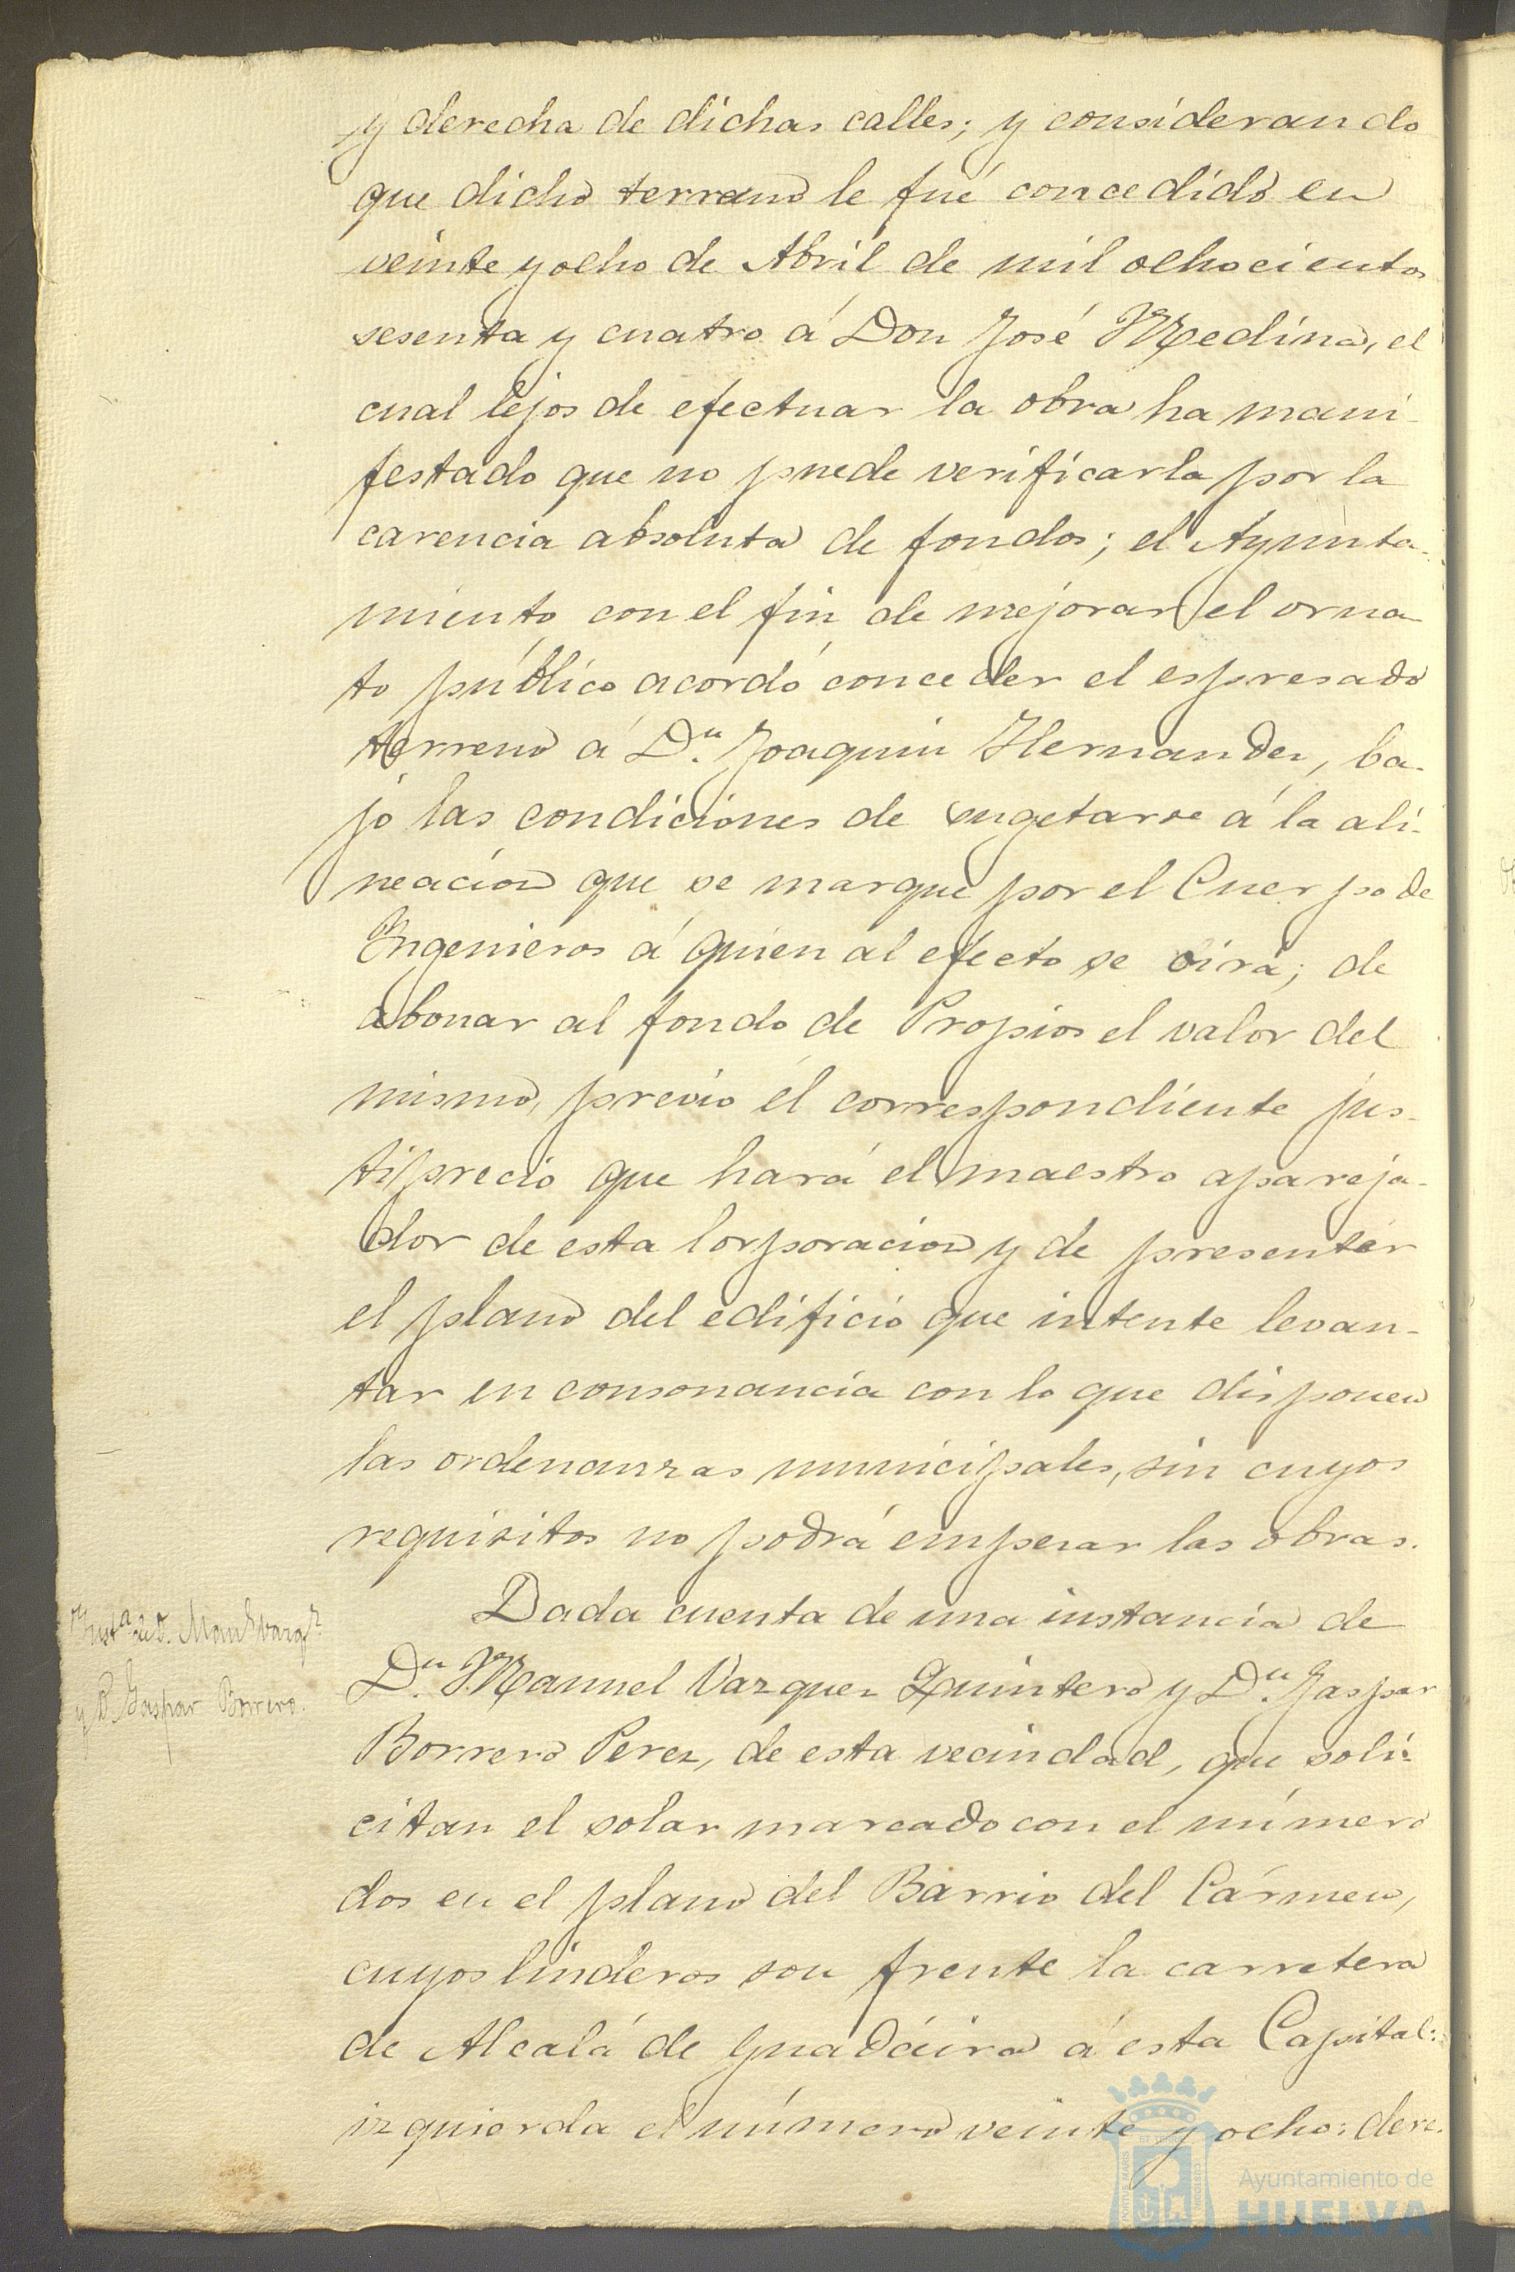 y derecha de dichas calles; y considerando
que dicho terreno le fué concedido en
veinte y ocho de Abril de mil ochocientos
sesenta y cuatro á Don José Medina, el
cual lejos de efectuar la obra ha mani-
festado que no puede verificarla por la
carencia absoluta de fondos; el Ayunta-
miento con el fin de mejorar el orna-
to público acordó conceder el espresado
terreno á Dn. Joaquin Hernandez, ba-
jo las condiciones de sugetarse á la ali-
neacion que se marque por el Cuerpo de
Ingenieros á quien al efecto se oirá; de
abonar al fondo de Propios el valor del
mismo, previo el correspondiente jus-
tiprecio que hará el maestro apareja-
dor de esta Corporacion y de presentar
el plano del edificio que intente levan-
tar en consonancia con lo que disponen
las ordenanzas municipales, sin cuyos
requisitos no podrá empezar las obras.
Dada cuenta de una instancia de
Dn. Manuel Vazquez Quintero y Dn. Gaspar
Borrero Perez, de esta vecindad, que soli-
citan el solar marcado con el número
dos en el plano del Barrio del Cármen,
cuyos linderos son frente la carretera
de Alcalá de Guadáira á esta Capital:
izquierda el número veinte y ocho: dere-
Insta. de D. Manl Vazqz.
y D. Gaspar Borrero.
Ayuntamiento de
HUELVA